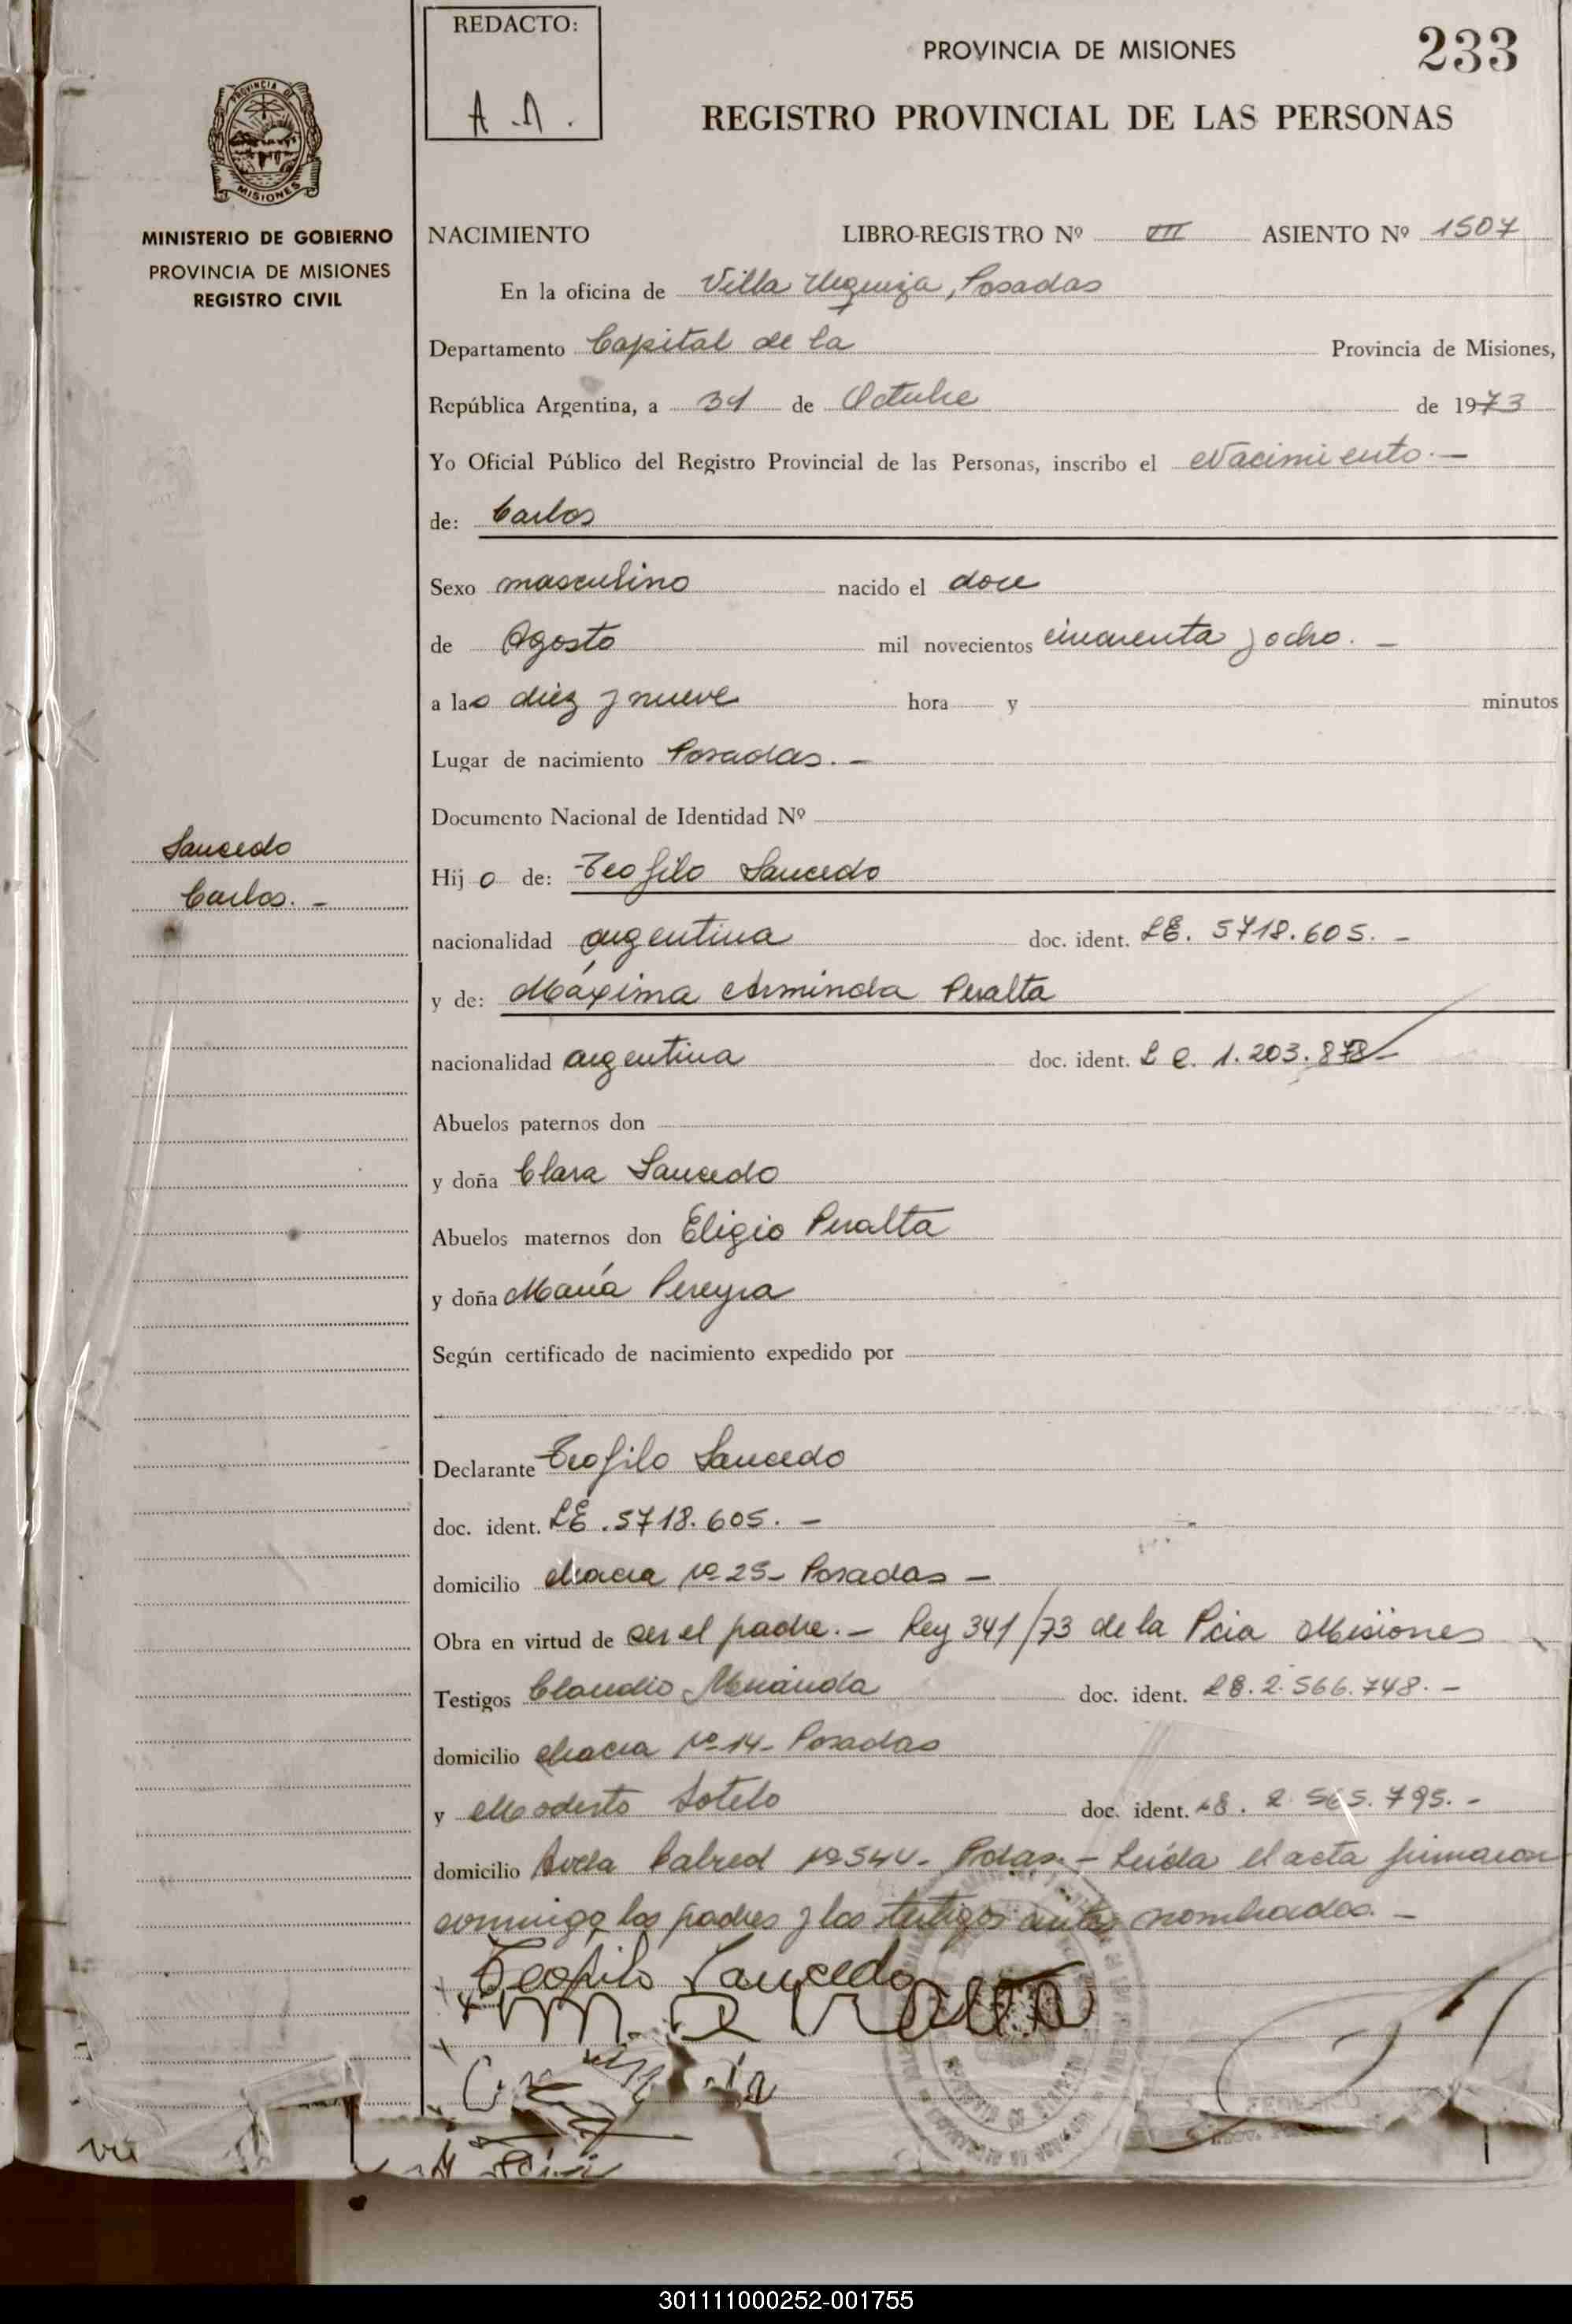 REDACTO:
A.A.
PROVINCIA DE MISIONES
233
REGISTRO PROVINCIAL DE LAS PERSONAS
PROVINCIA DE
MISIONES
MINISTERIO DE GOBIERNO
PROVINCIA DE MISIONES
REGISTRO CIVIL
NACIMIENTO LIBRO-REGISTRO Nº VII ASIENTO Nº 1507
En la oficina de Villa Urquiza, Posadas
Departamento Capital de la Provincia de Misiones,
República Argentina, a 31 de Octubre de 1973
Yo Oficial Público del Registro Provincial de las Personas, inscribo el Nacimiento.—
de: Carlos
Sexo masculino nacido el doce
de Agosto mil novecientos cincuenta y ocho. —
a las diez y nueve hora y minutos
Lugar de nacimiento Posadas. —
Documento Nacional de Identidad Nº
Saucedo
Carlos. —
Hijo de: Teofilo Saucedo
nacionalidad argentina doc. ident. LE. 5718.605. —
y de: Máxima Arminda Peralta
nacionalidad argentina doc. ident. L C. 1.203.878 —
Abuelos paternos don
y doña Clara Saucedo
Abuelos maternos don Eligio Peralta
y doña María Pereyra
Según certificado de nacimiento expedido por
Declarante Teofilo Saucedo
doc. ident. LE. 5718.605. —
domicilio chacra nº 25 — Posadas —
Obra en virtud de ser el padre. — Ley 341/73 de la Pcia Misiones
Testigos Claudio Miranda doc. ident. LE. 2.566.748. —
domicilio chacra nº 14 — Posadas
y Modesto Sotelo doc. ident. LE. 2.565.795. —
domicilio Avda Cabred nº 544 — Pdas. — Leída el acta firmaron
conmigo los padres y los testigos antes nombrados. —
Teofilo Saucedo
M. Peralta
301111000252-001755